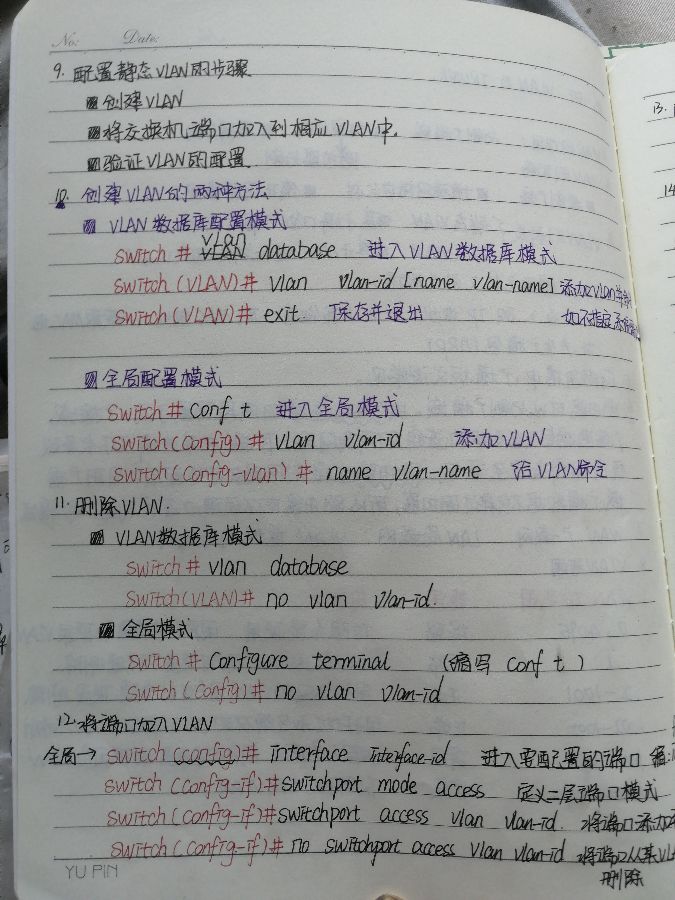 No: Date:
9. 配置静态VLAN的步骤
创建VLAN
将交换机端口加入到相应VLAN中.
验证VLAN的配置
10. 创建VLAN的两种方法
VLAN数据库配置模式
switch # vlan database 进入VLAN数据库模式
switch (VLAN)# vlan vlan-id [name vlan-name] 添加VLAN
switch (VLAN)# exit 保存并退出 如不指定
全局配置模式
switch # conf t 进入全局模式
switch (config) # vlan vlan-id 添加VLAN
switch (config-vlan) # name vlan-name 给VLAN命令
11. 删除VLAN.
VLAN数据库模式
switch # vlan database
switch (VLAN)# no vlan vlan-id.
全局模式
switch # configure terminal (缩写 conf t )
switch (config)# no vlan vlan-id
12. 将端口加入VLAN
全局→ switch (config)# interface interface-id 进入要配置的端口
switch (config-if)#switchport mode access 定义二层端口模式
switch (config-if)#switchport access vlan vlan-id. 将端口添加
switch (config-if)# no switchport access vlan vlan-id 将端口从某VL
删除
YU PIN